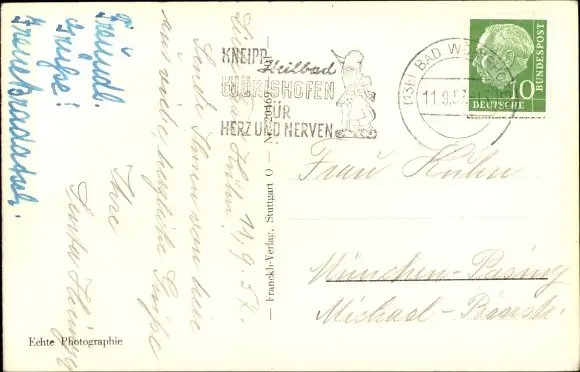 Freundl.
Grüße!
KNEIPP
Heilbad
WÖRISHOFEN
FÜR
HERZ UND NERVEN
(13b) BAD WÖRISHOFEN
11.9.57
10
DEUTSCHE
BUNDESPOST
Liebe Frau Kühn! 11.9.57.
Sende Ihnen von hier
aus viele, herzliche Grüße
Ihre
Franckh-Verlag, Stuttgart O — Nr. 20469
Frau Kühn
München-Pasing
Michael-
Echte Photographie